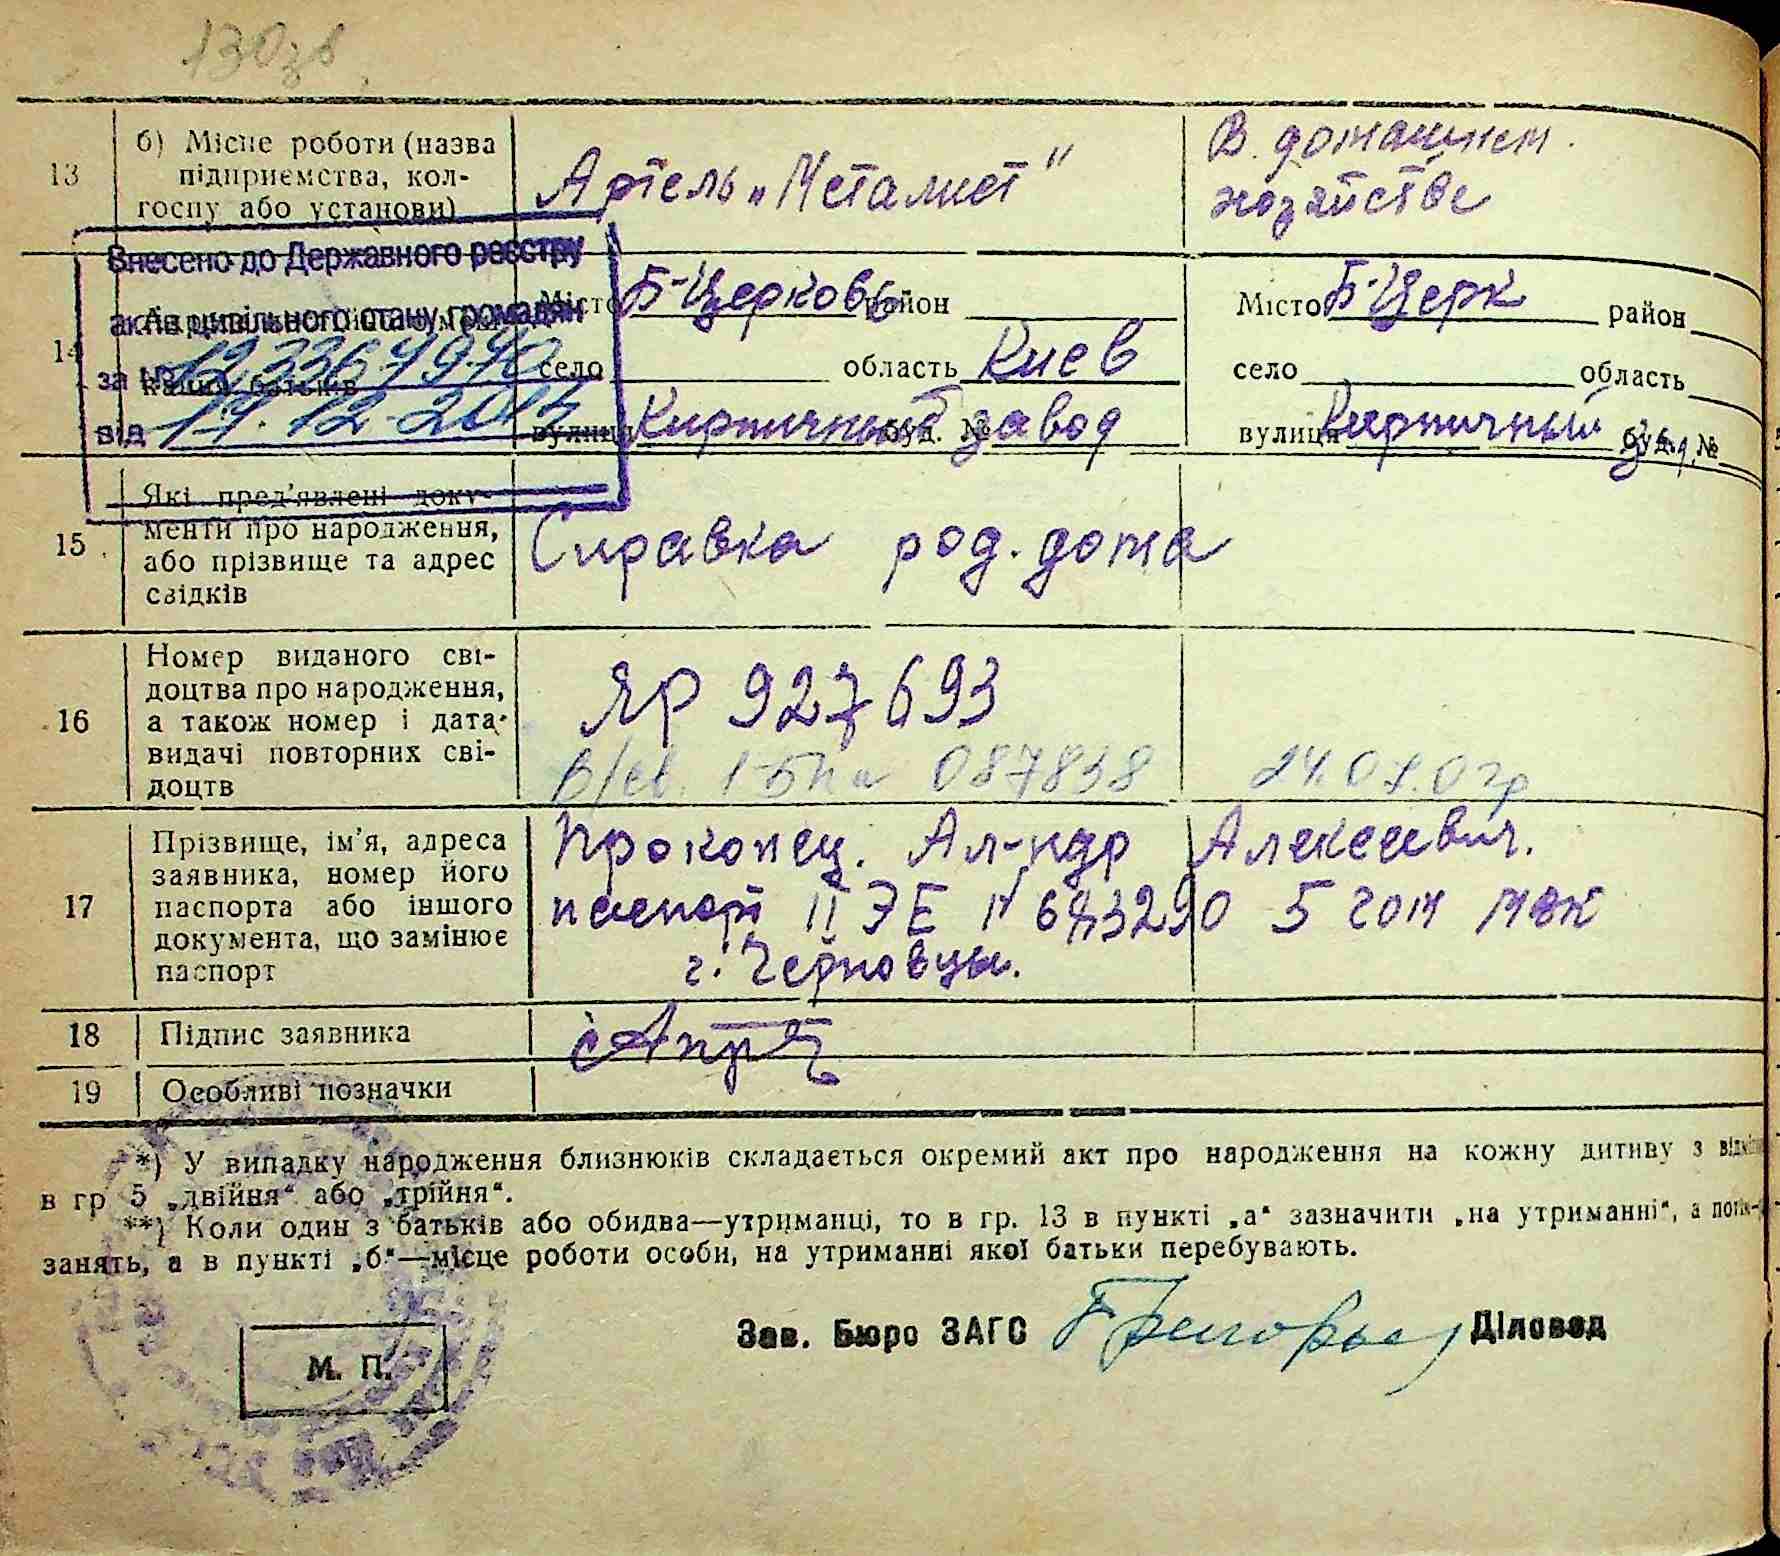 130зв
13
б) Місце роботи (назва
підприємства, кол-
госпу або установи)
Артель „Металист"
В домашнем
хозяйстве
Внесено до Державного реєстру
актів цивільного стану громадян
за №
від 17.12.2014
14
Місто Б-Церковь район
село область Киев
вулиця Кирпичный завод буд. №
Місто Б-Церк район
село область
вулиця Кирпичный зав. буд. №
15
Які пред'явлені доку-
менти про народження,
або прізвище та адрес
свідків
Справка род. дома
16
Номер виданого сві-
доцтва про народження,
а також номер і дата
видачі повторних сві-
доцтв
ЯР 927693
В/св. 1-БК 087838
17
Прізвище, ім'я, адреса
заявника, номер його
паспорта або іншого
документа, що замінює
паспорт
Прокопец. Ал-ндр Алексеевич.
паспорт II ЭЕ N 5 гом
г. Черновцы.
18 Підпис заявника
19 Особливі позначки
*) У випадку народження близнюків складається окремий акт про народження на кожну дитину з
в гр 5 „двійня" або „трійня".
**) Коли один з батьків або обидва—утриманці, то в гр. 13 в пункті „а" зазначити „на утриманні", а
занять, а в пункті „б"—місце роботи особи, на утриманні якої батьки перебувають.
Зав. Бюро ЗАГС Діловод
М. П.